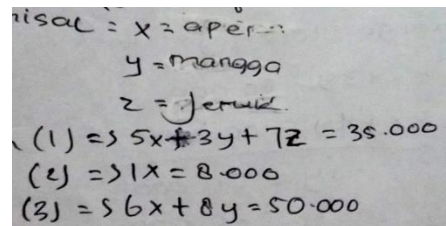 isal = x = apel
y = mangga
z = Jeruk
(1) => 5x+3y+7z = 35.000
(2) => 1x = 8.000
(3) => 6x + 8y = 50.000